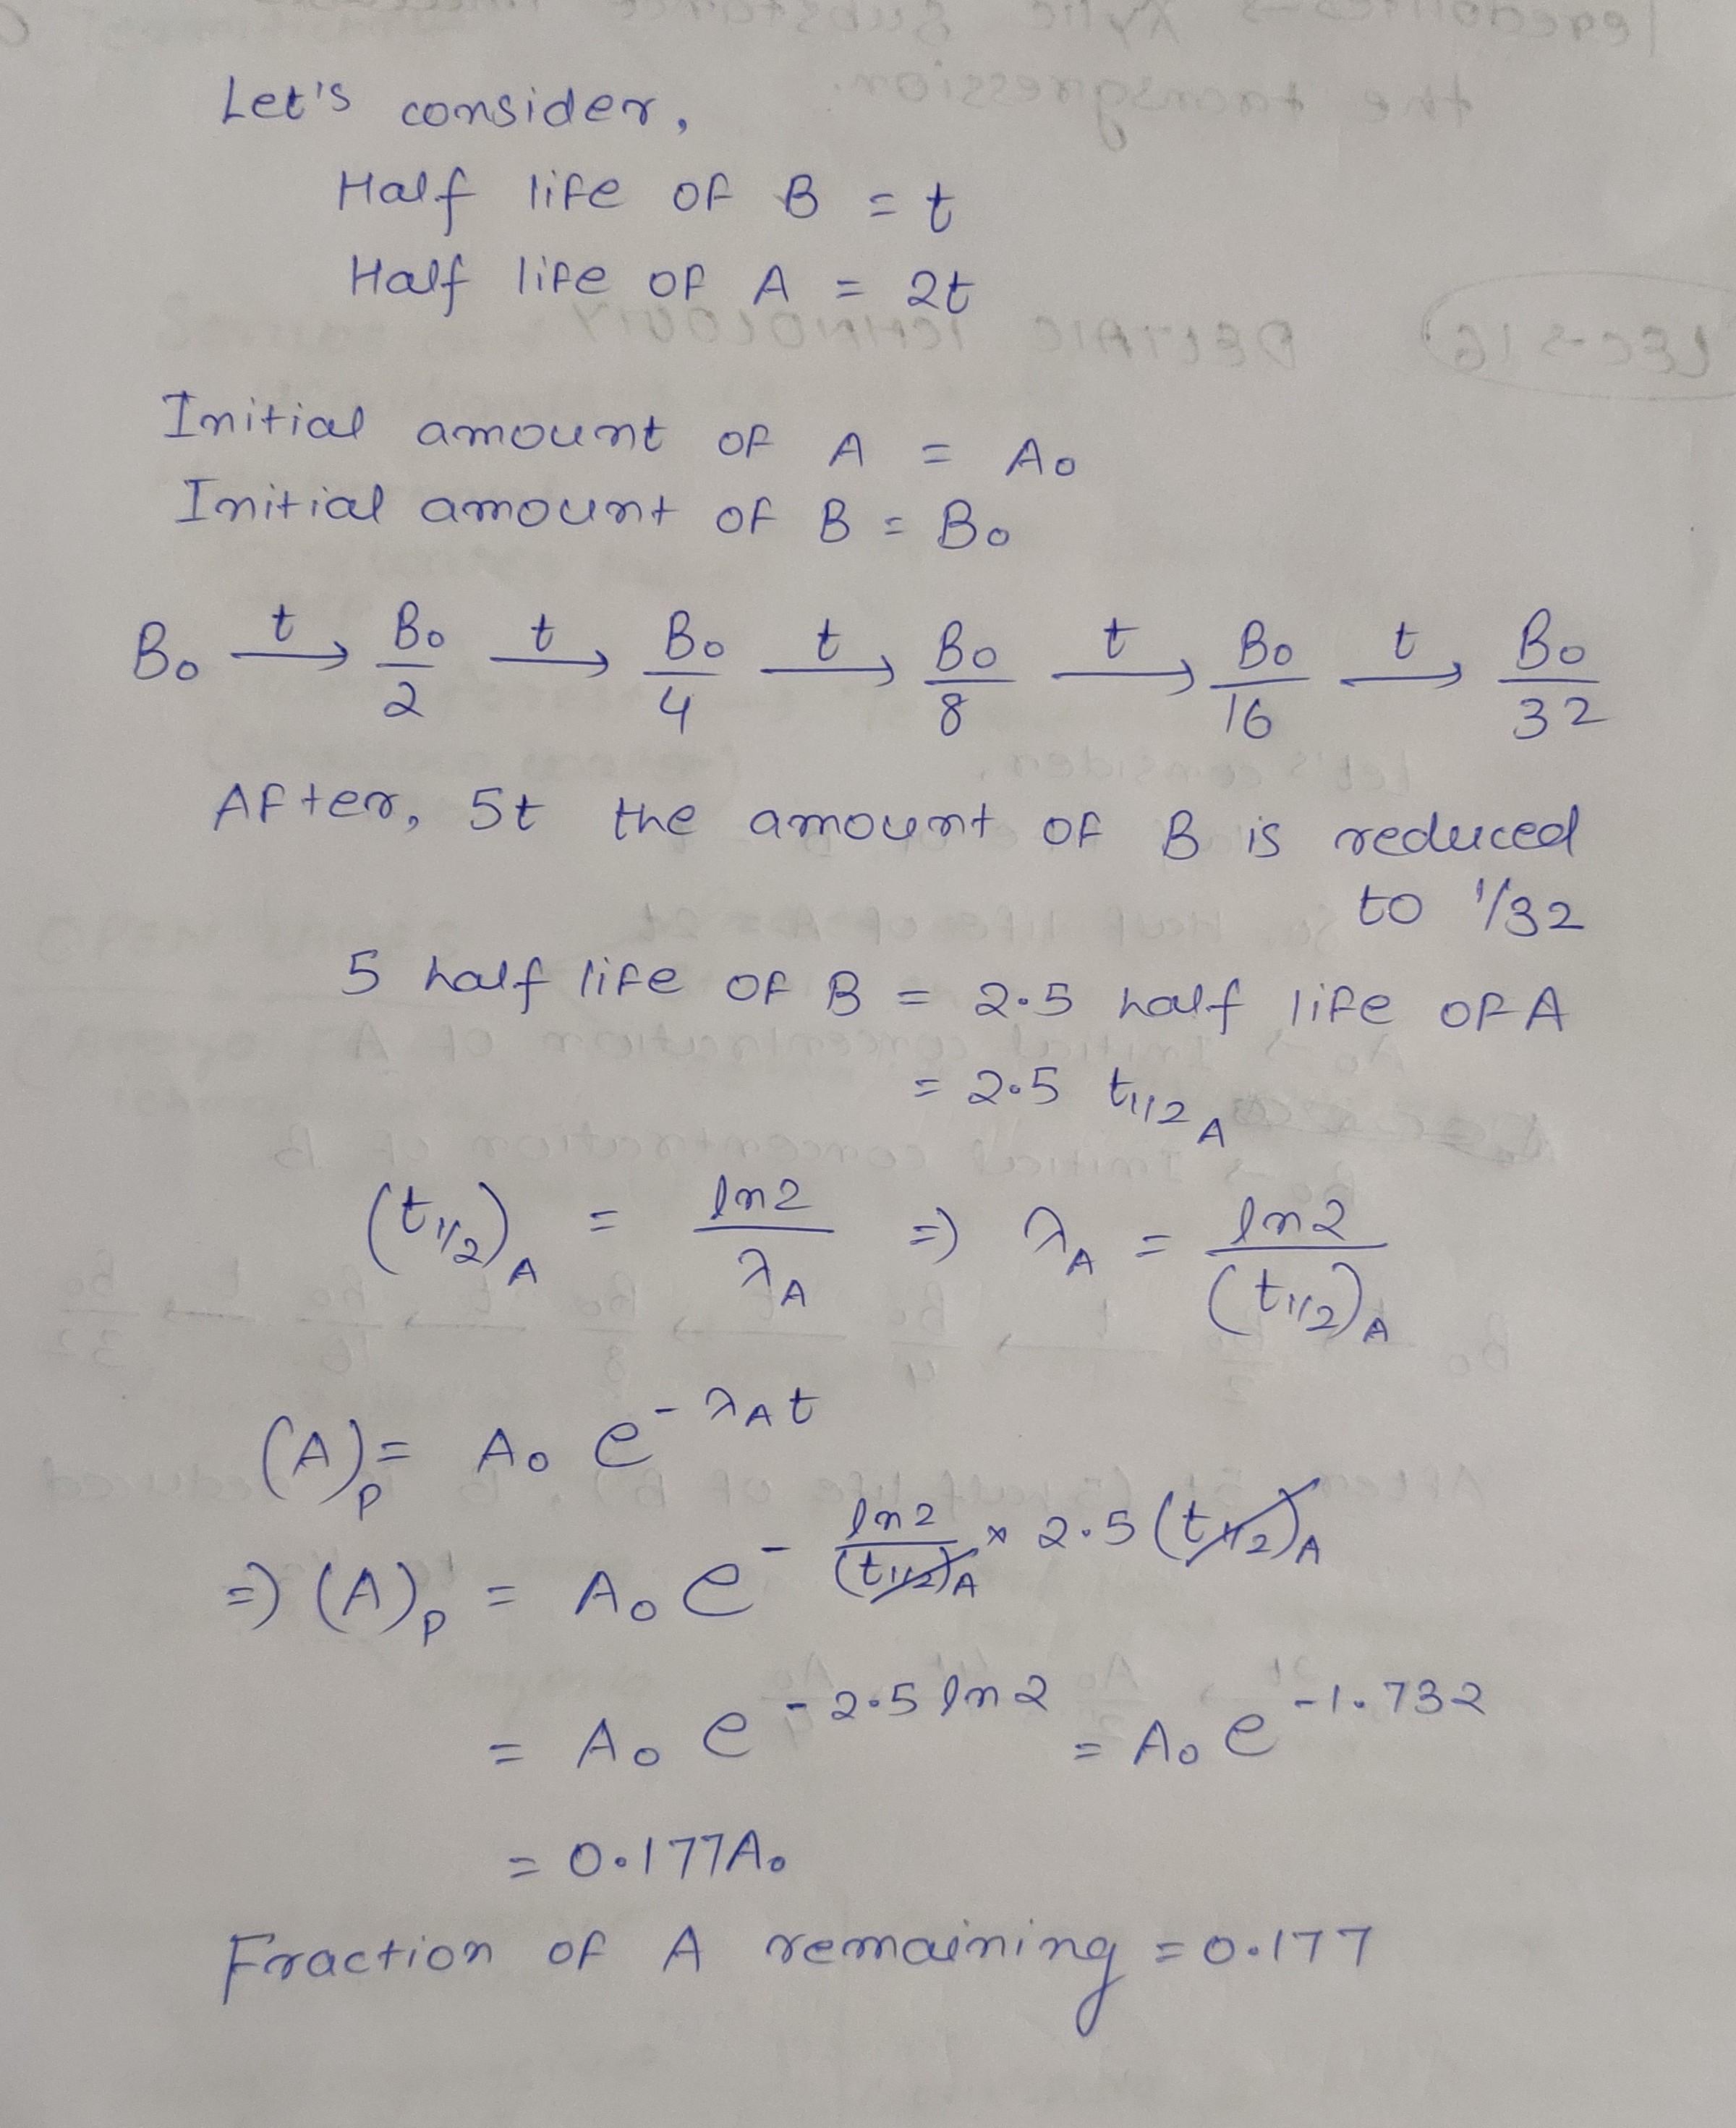 Let's consider,
Half life of B = t
Half life of A = 2t
Initial amount of A = A₀
Initial amount of B = B₀
B₀ —t→ B₀/2 —t→ B₀/4 —t→ B₀/8 —t→ B₀/16 —t→ B₀/32
After, 5t the amount of B is reduced
to 1/32
5 half life of B = 2.5 half life of A
= 2.5 t1/2 A
(t1/2)A = ln2/λA => λA = ln2/(t1/2)A
(A)p = A₀ e^-λAt
=> (A)p = A₀ e^- ln2/(t1/2)A × 2.5 (t1/2)A
= A₀ e^-2.5 ln2 = A₀ e^-1.732
= 0.177A₀
Fraction of A remaining = 0.177